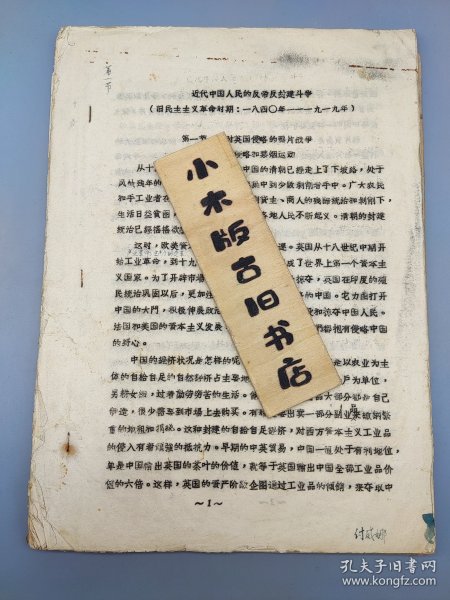 第一节
近代中国人民的反帝反封建斗争
(旧民主主义革命时期:一八四〇年——一九一九年)
第一节 对英国侵略的鸦片战争
略和禁烟运动
从十 中国的清朝已经走上了下坡路,处于
风烛残年的 中到少数剥削者手中。广大农民
和手工业者在 资主、商人的残酷统治和剥削下
生活日益贫困, 各地人民不断起义。清朝的封建
统治已经摇摇欲
这时,欧美资 遂。英国从十八世纪中期开
始工业革命,到十九 成了世界上第一个资本主
义国家。为了开辟市场 掠夺,英国在印度的殖
民统治巩固以后,更加强 的中国。它力图打开
中国的大门,积极伸展政治 和掠夺中国人民。
法国和美国的资本主义发展 们都抱有侵略中国人
的野心。
中国的经济状况是怎样的呢 是以农业为主
体的自给自足的自然经济占主要地 户为单位,
男耕女织,过着勤劳穷苦的生活。 品大部分都是自己
伊造,很少需要到市场上去购买。 有 要出卖一部分副业来缴纳繁
重的地租和捐税。这种封建的自给自足经济,对西方资本主义工业品
的侵入有着顽强的抵抗力。早期的中英贸易,中国一直处于有利地位,
年是中国输出英国的茶叶的价值,就等于英国输出中国全部工业品价
值的六倍。这样,英国的资产阶级企图通过工业品的倾销,来夺取中
~1~
小木版古旧书店
孔夫子旧书网
www.kongfz.com